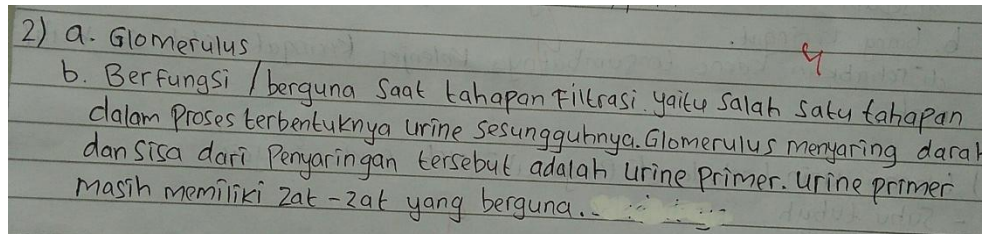 2) a. Glomerulus
4
b. Berfungsi / berguna saat tahapan Filtrasi yaitu salah satu tahapan
dalam proses terbentuknya urine sesungguhnya. Glomerulus menyaring darah
dan sisa dari penyaringan tersebut adalah urine primer. urine primer
masih memiliki zat-zat yang berguna.